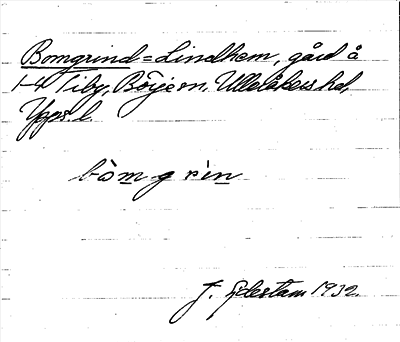 Bomgrind = Lindhem, gård å
1-4 Tiby, Börje sn, Ulleråkers hd,
Upps. l.
bòmgrìn
J. Götestam 1932.